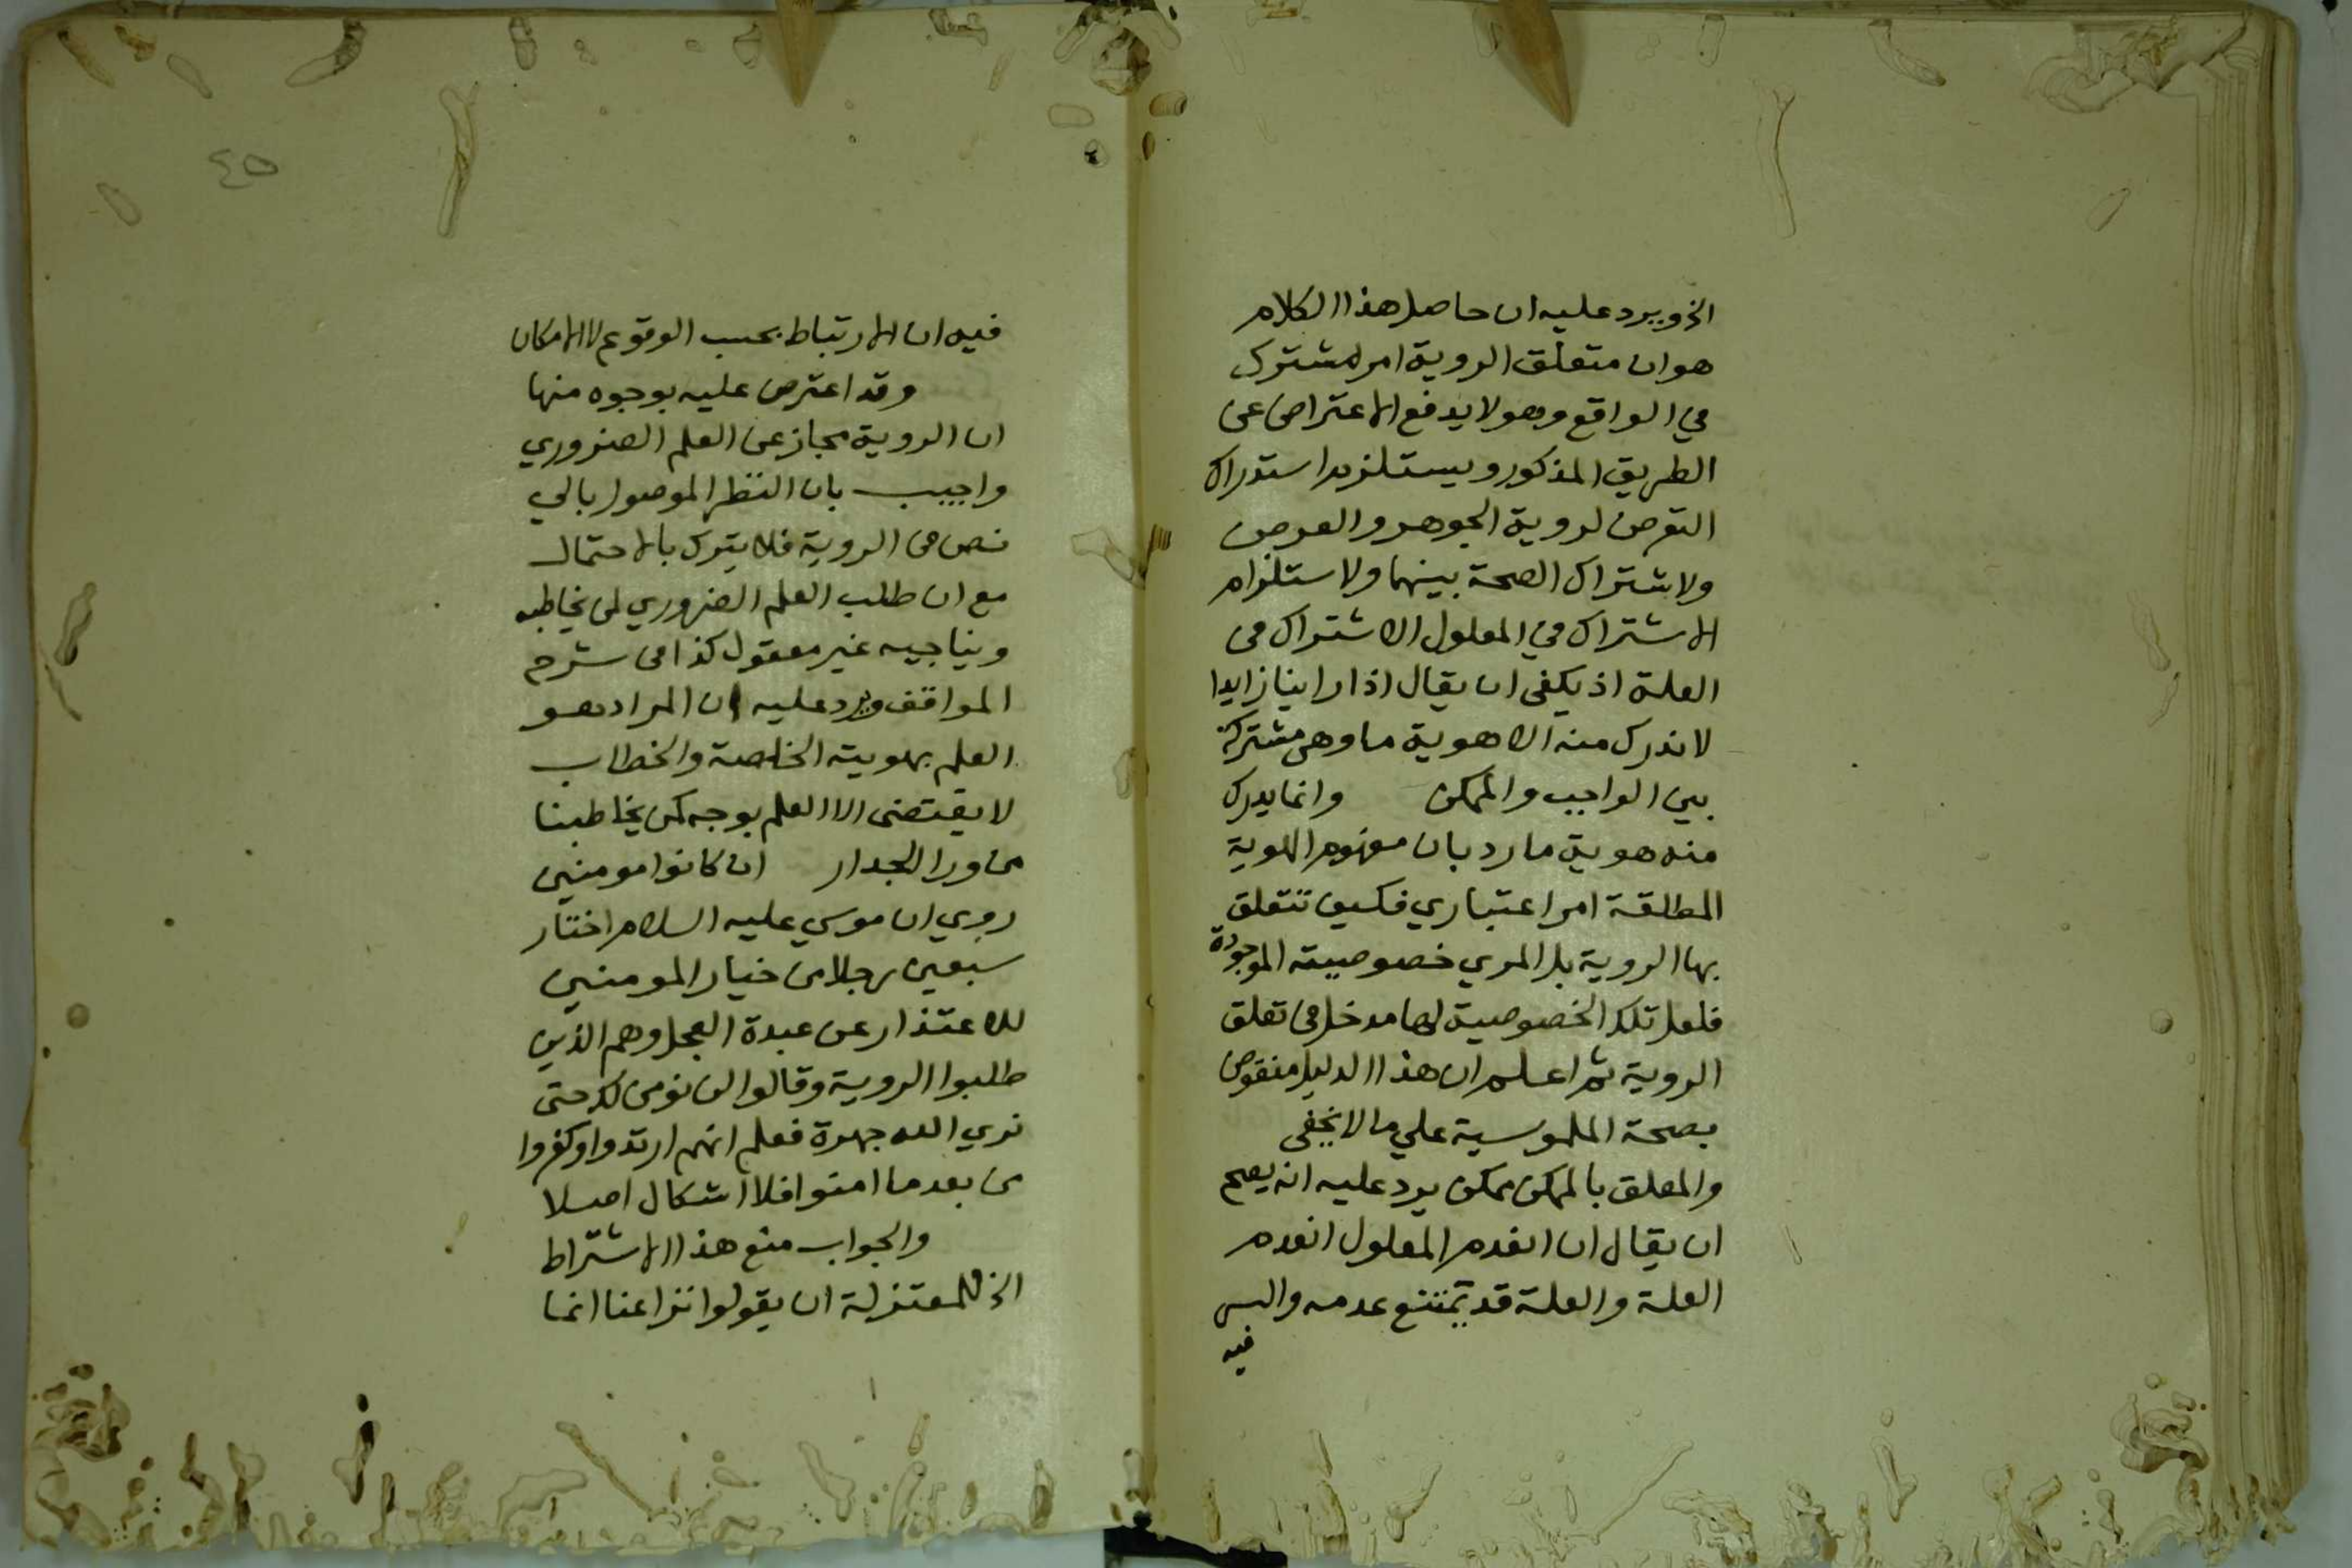 الخ ويرد عليه ان حاصل هذا الكلام
هو ان متعلق الروية امر مشترك
في الواقع وهو لا يدفع الاعتراض عن
الطريق المذكور ويستلزم استدراك
التعرض لروية الجوهر والعرض
ولاشتراك الصحة بينهما ولاستلزام
الاشتراك في المعلول الاشتراك في
العلة اذ يكفى ان يقال اذا راينا زايدا
لا ندرك منه الا هوية ما وهى مشتركة
بين الواجب والممكن وانما يدرك
منه هوية ما رد بان مفهوم الهوية
المطلقة امر اعتباري فكيف تتعلق
بها الروية بل المري خصوصيته الموجودة
فلعل تلك الخصوصية لها مدخل في تعلق
الروية ثم اعلم ان هذا الدليل منقوض
بصحة الملموسية علي ما لا يخفى
والمعلق بالممكن ممكن يرد عليه انه يصح
ان يقال ان انعدم المعلول انعدم
العلة والعلة قد يمتنع عدمه والسر
فيه
٤٥
فيه ان الارتباط بحسب الوقوع لا الامكان
وقد اعترض عليه بوجوه منها
ان الروية مجاز عن العلم الضروري
واجيب بان النظر الموصول بالي
نص في الروية فلا يترك بالاحتمال
مع ان طلب العلم الضروري لمن يخاطبه
ويناجيه غير معقول كذا في شرح
المواقف ويرد عليه ان المراد هو
العلم بهويته الخاصة والخطاب
لا يقتضى الا العلم بوجه كمن يخاطبنا
من ورا الجدار ان كانوا مومنين
روي ان موسي عليه السلام اختار
سبعين رجلا من خيار المومنين
للاعتذار عن عبدة العجل وهم الذين
طلبوا الروية وقالوا لن نومن لك حتى
نري الله جهرة فعلم انهم ارتدوا وكفروا
من بعد ما امنوا فلا اشكال اصلا
والجواب منع هذا الاشتراط
الخ للمعتزلة ان يقولوا نزاعنا انما